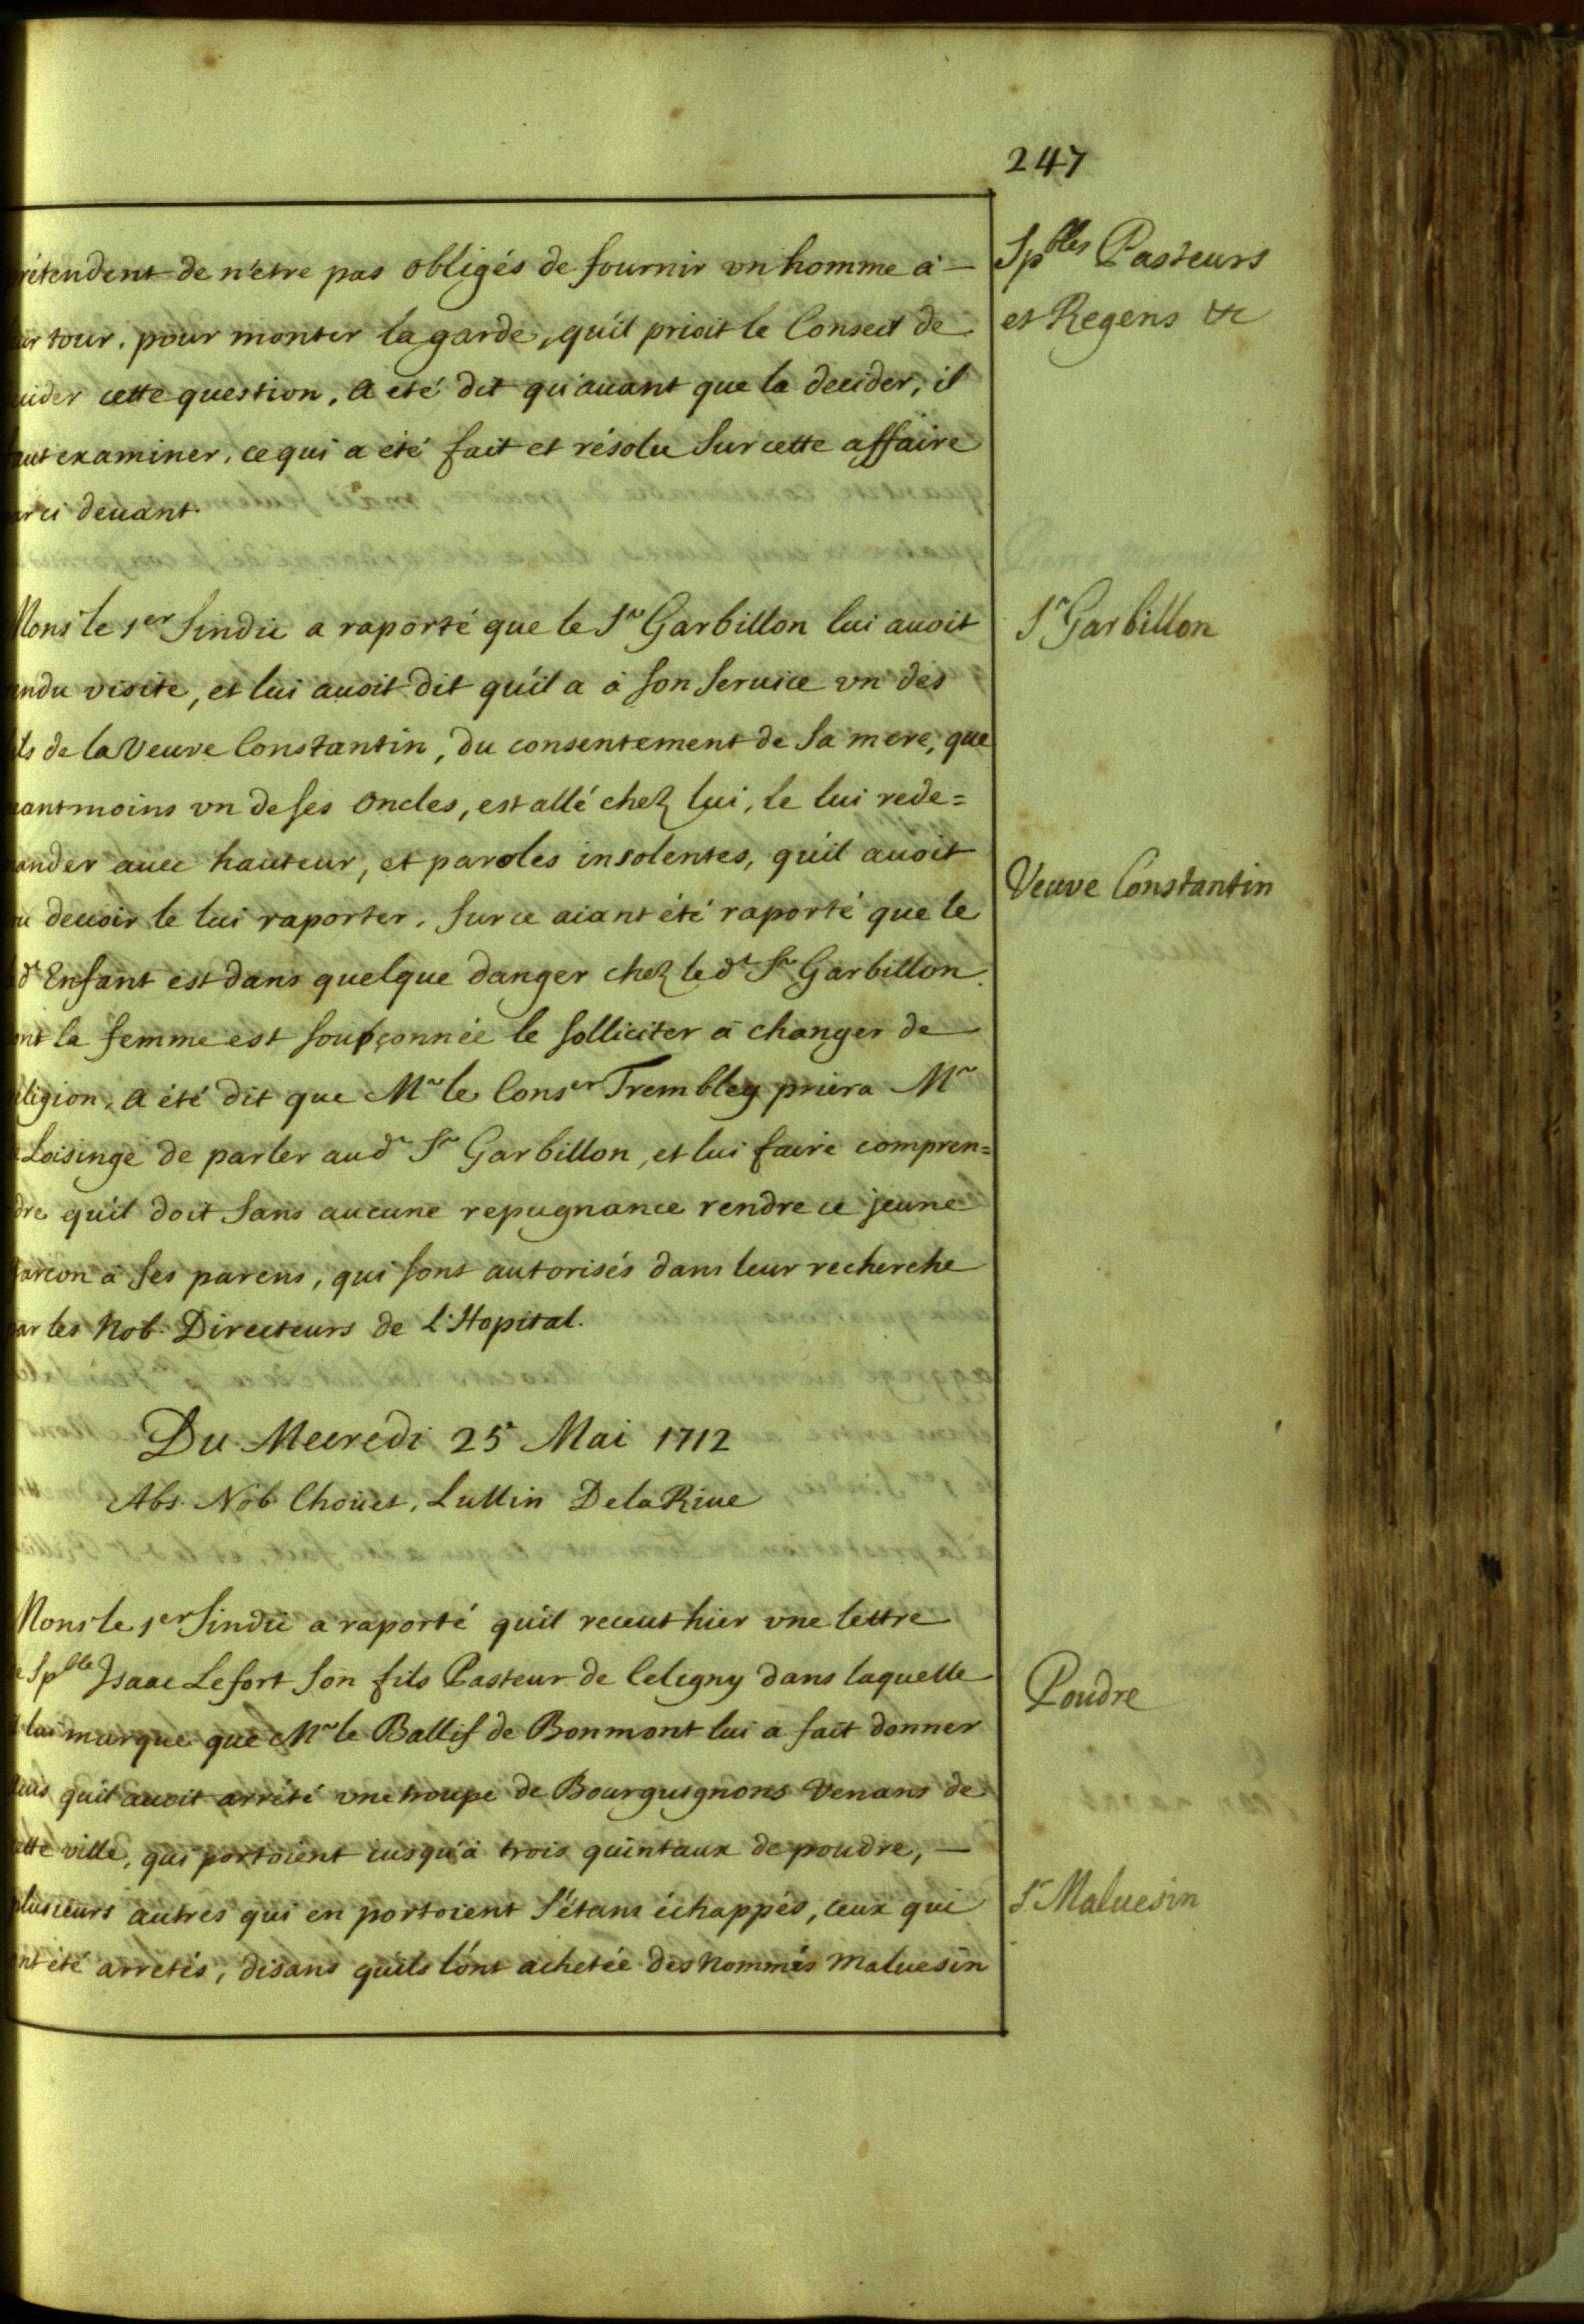 247
Spbles Pasteurs
et Regens &c
rétendent de n'etre pas obligés de fournir un homme à —
ur tour, pour monter la garde, qu'il prioit le Conseil de
uider cette question, A eté dit qu'auant que la decider, il
aut examiner, ce qui a eté fait et résolu sur cette affaire
ar ci deuant.
Sr Garbillon
Mons le 1er Sindic a raporté que le Sr Garbillon lui auoit
endu visite, et lui auoit dit qu'il a à son seruice un des
ils de la Veuve Constantin, du consentement de sa mere, que
eantmoins un de ses Oncles, est allé chez lui, le lui rede=
ander auec hauteur, et paroles insolentes, qu'il auoit
Veuve Constantin
u deuoir le lui raporter. Sur ce aiant été raporté que le
dt Enfant est dans quelque danger chez le dt Sr Garbillon
ont la femme est soupçonnée le solliciter à changer de
eligion, A été dit que Mr le Conser Trembley priera Mr
Loisinge de parler aud Sr Garbillon, et lui faire compren=
dre qu'il doit sans aucune repugnance rendre ce jeune
arcon à ses parens, qui sont autorisés dans leur recherche
par les Nob. Directeurs de l'Hopital.
Du Mecredi 25e Mai 1712
Abs. Nob. Choüet, Lullin DelaRiue
Mons le 1er Sindic a raporté qu'il receut hier une lettre
e Spble Isaac Lefort son fils Pasteur de Celigny dans laquelle
Poudre
il lui marque que Mr le Ballif de Bonmont lui a fait donner
uis qu'il auoit arrêté une troupe de Bourguignons Venans de
ette ville, qui portoient jusqu'à trois quintaux de poudre, —
plusieurs autres qui en portoient s'étans échappés, ceux qui
Sr Maluesin
ont été arretés, disans qu'ils l'ont achetée des nommés Maluesin